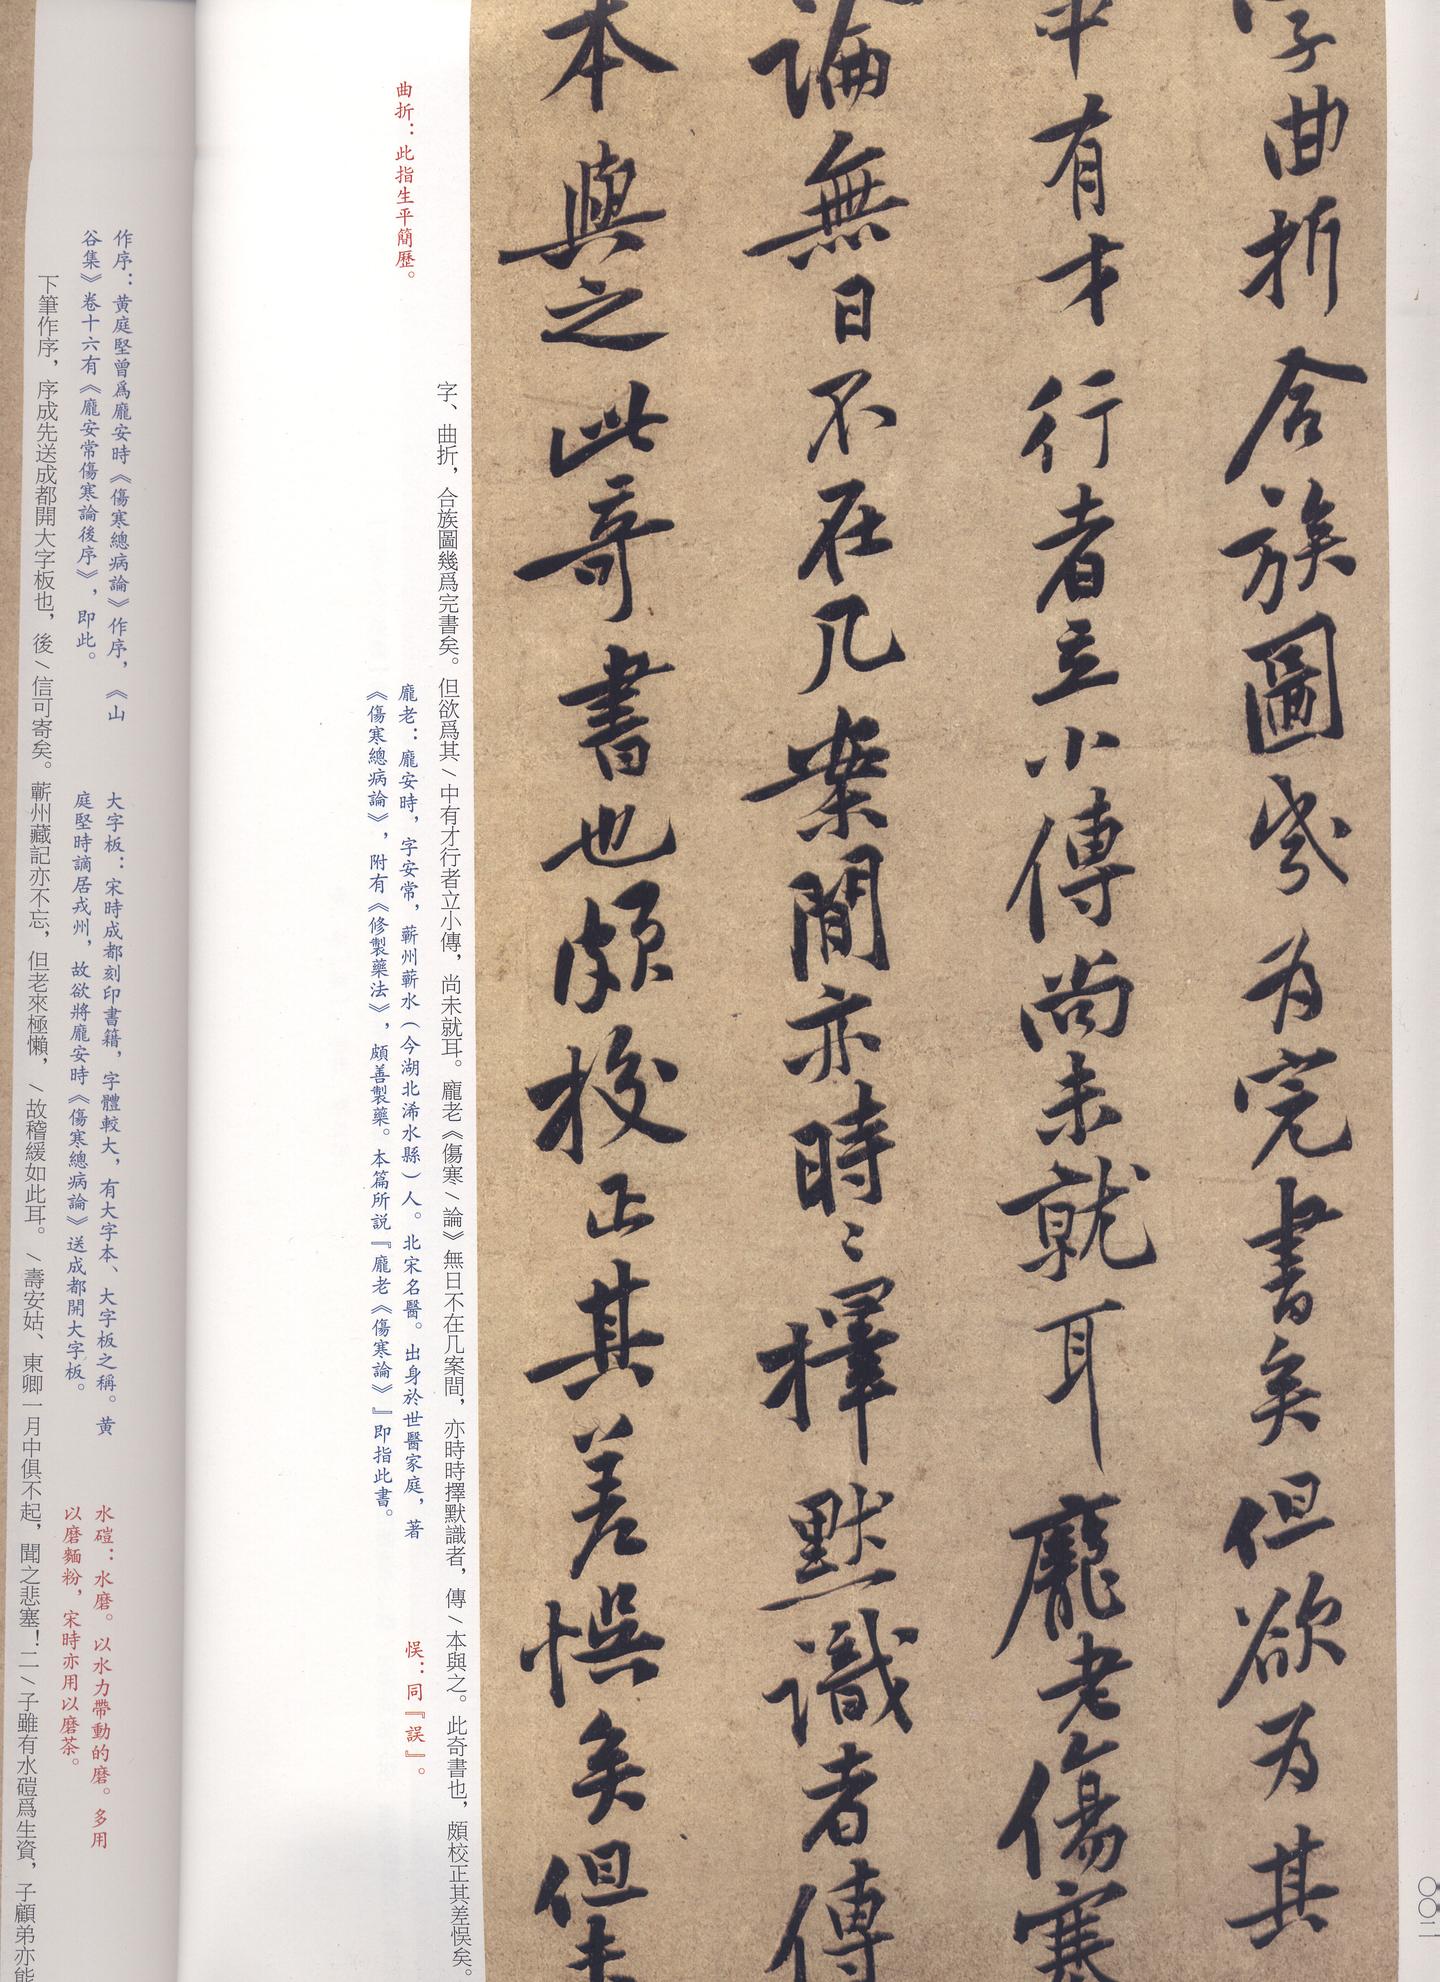 字曲折合族圖幾为完書矣但欲为其
中有才行者立小傳尚未就耳龐老傷寒
論無日不在几案間亦時〻擇默識者傳
本與之此奇書也頗挍正其差悮矣但未
字、曲折，合族圖幾爲完書矣。但欲爲其\中有才行者立小傳，尚未就耳。龐老《傷寒\論》無日不在几案間，亦時時擇默識者，傳\本與之。此奇書也，頗校正其差悮矣。
曲折：此指生平簡歷。
龐老：龐安時，字安常，蘄州蘄水（今湖北浠水縣）人。北宋名醫。出身於世醫家庭，著
《傷寒總病論》，附有《修製藥法》，頗善製藥。本篇所説『龐老《傷寒論》』即指此書。
悮：同『誤』。
〇〇二
作序：黄庭堅曾爲龐安時《傷寒總病論》作序，《山
谷集》卷十六有《龐安常傷寒論後序》，即此。
大字板：宋時成都刻印書籍，字體較大，有大字本、大字板之稱。黄
庭堅時謫居戎州，故欲將龐安時《傷寒總病論》送成都開大字板。
水磑：水磨。以水力帶動的磨。多用
以磨麵粉，宋時亦用以磨茶。
下筆作序，序成先送成都開大字板也，後\信可寄矣。蘄州藏記亦不忘，但老來極懶，\故稽緩如此耳。\壽安姑、東卿一月中俱不起，聞之悲塞！二\子雖有水磑爲生資，子顧弟亦能